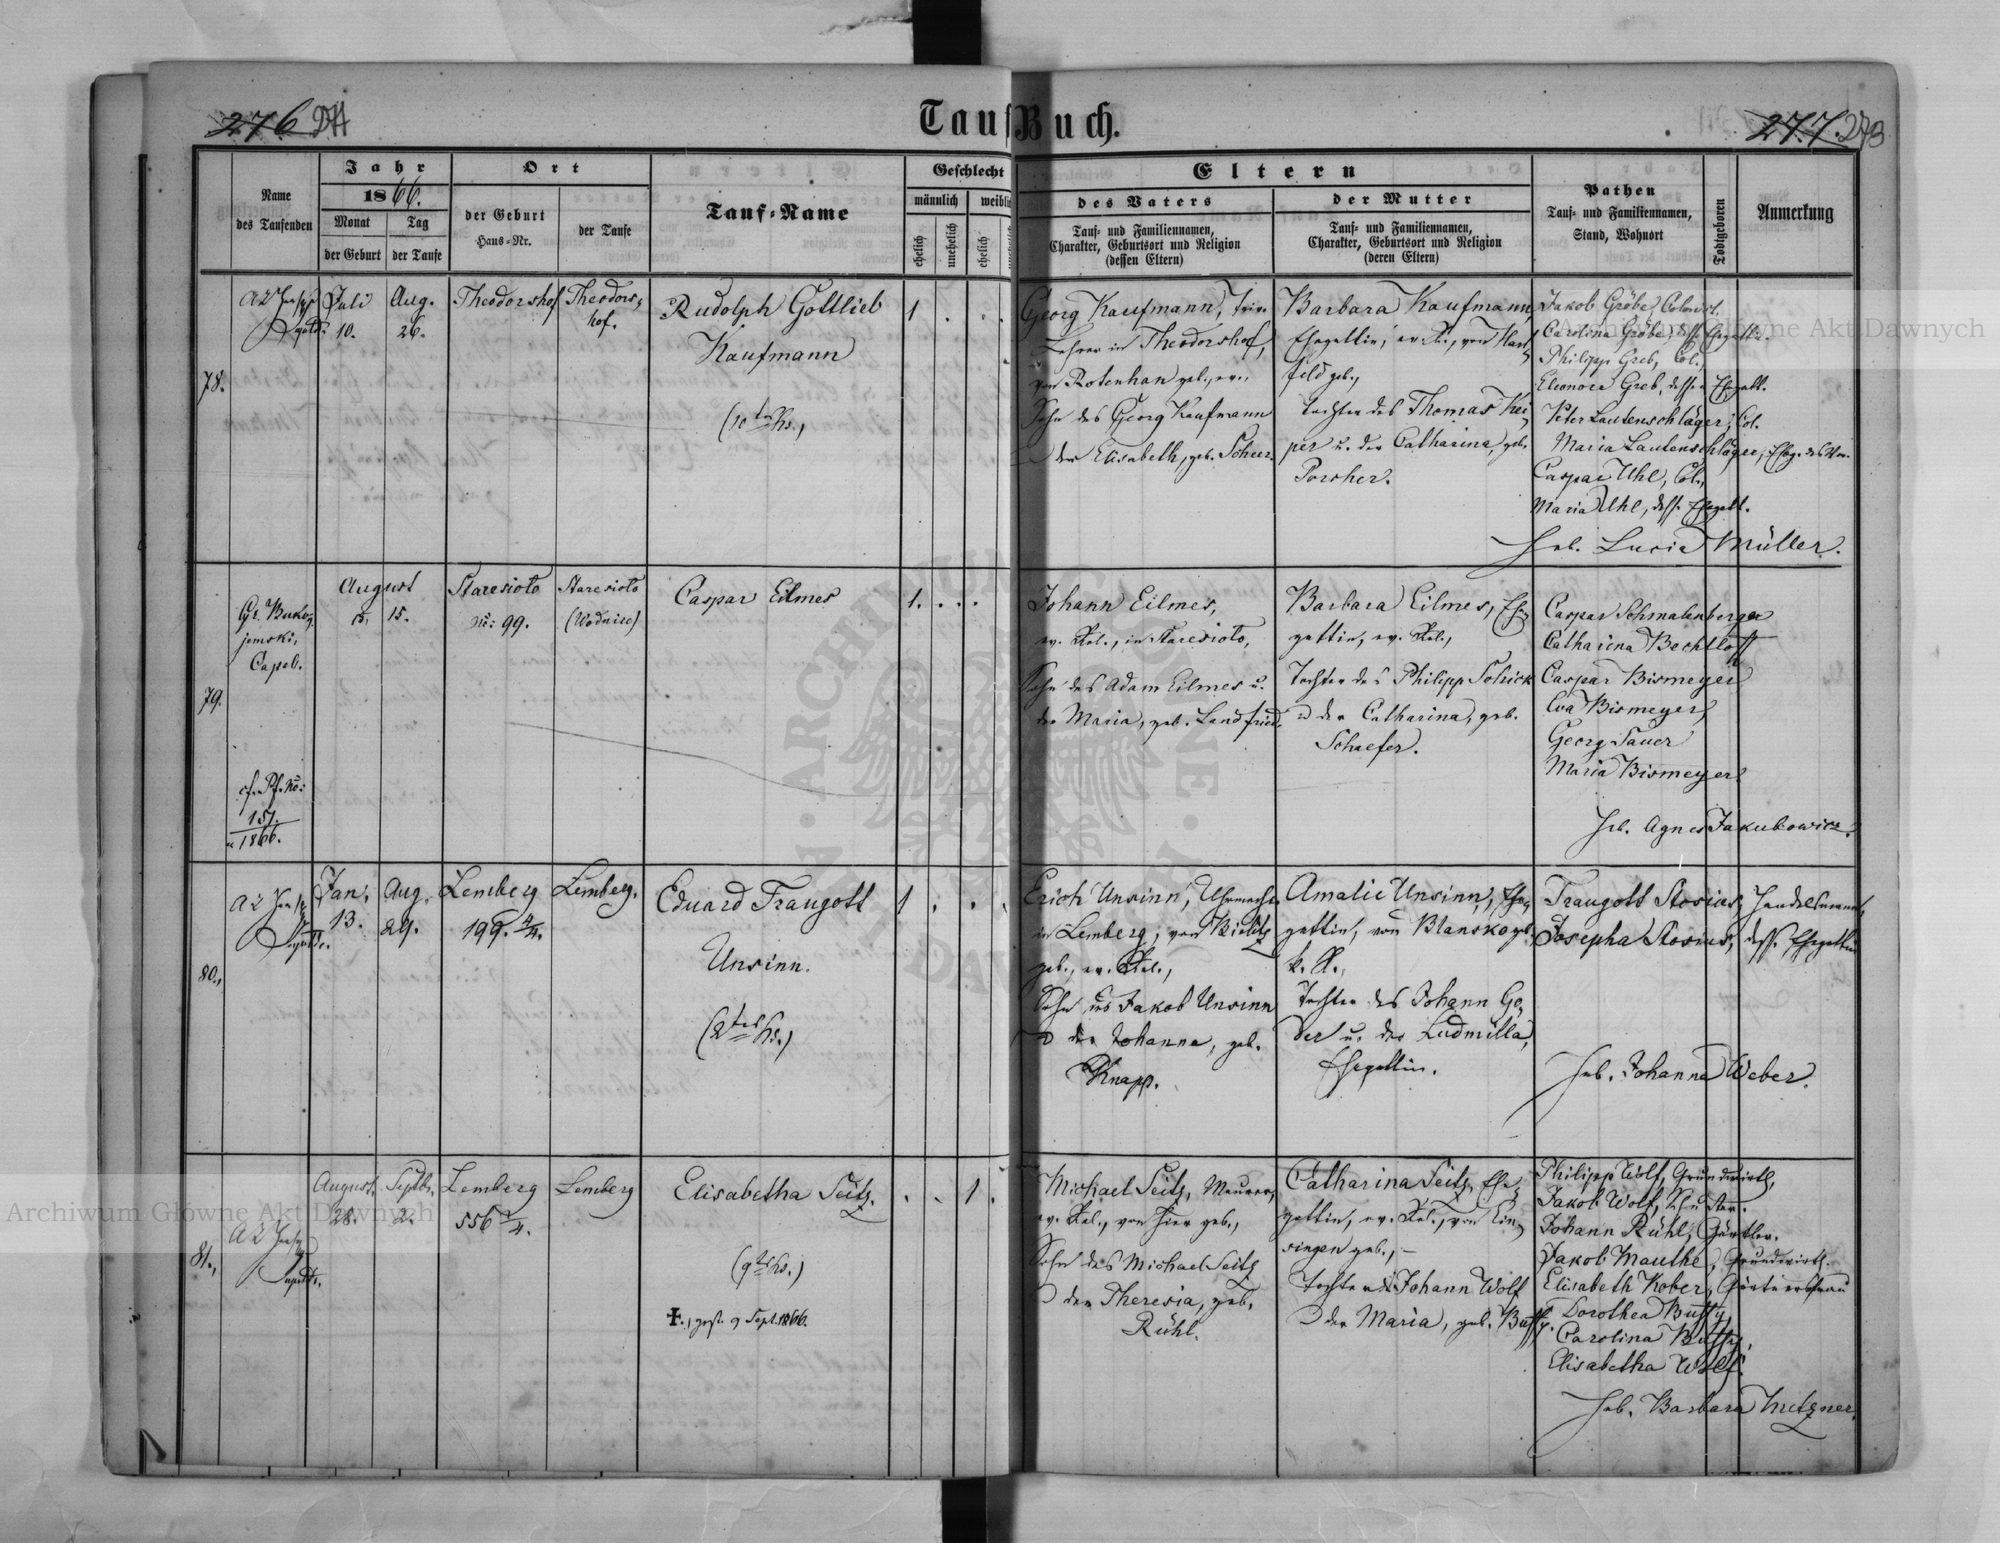 276 274
TaufBuch.
277. 273
Name
des Taufenden
Jahr
1866.
Monat
der Geburt
Tag
der Taufe
Ort
der Geburt
Haus=Nr.
der Taufe
Tauf=Name
Geschlecht
männlich
weiblich
ehelich
unehelich
ehelich
Eltern
des Vaters
Tauf= und Familiennamen,
Charakter, Geburtsort und Religion
(dessen Eltern)
der Mutter
Tauf= und Familiennamen,
Charakter, Geburtsort und Religion
(deren Eltern)
Pathen
Tauf= und Familiennamen,
Stand, Wohnort
Todtgeboren
Anmerkung
78.
Juli
10.
Aug.
26.
Theodorshof
Theodors=
hof.
Rudolph Gottlieb
Kaufmann
(10tes Ks.)
1
Georg Kaufmann,
Lehrer in Theodorshof,
von Rotenhan geb., ev.,
Sohn des Georg Kaufmann
u. der Elisabeth, geb. Scheer.
Barbara Kaufmann,
Ehegattin, von Hart=
feld geb.,
Tochter des Thomas Kei=
per u. der Catharina, geb.
Porsher.
Jakob Gröbe, Colonist.
Carolina Gröbe, dess. Ehegattin.
Philipp Greb, Col.,
Eleonore Greb, dessen Ehegatt.
Peter Lautenschläger, Col.
Maria Lautenschläger,
Caspar Uhl, Col.,
Maria Uhl, dess. Ehegatt.
Heb. Lucia Müller.
79.
Gr. Bukow=
jemski,
Capeb.
cfr. Pf. No:
151.
1866.
August
15.
Staresioto
No: 99.
Staresioto
(Wodnise)
Caspar Eilmes
1.
Johann Eilmes,
ev. Rel., in Staresioto,
Sohn des Adam Eilmes u.
der Maria, geb. Landfried.
Barbara Eilmes, Ehe=
gattin, ev. Rel.,
Tochter des Philipp Schick
u. der Catharina, geb.
Schaefer.
Caspar Schmalenberger
Catharina Bechtloff
Caspar Bismeyer
Eva Bismeyer,
Georg Sauer
Maria Bismeyer.
Heb. Agnes Jakubowicz.
80.
Jan.
13.
Aug.
29.
Lemberg
199. 4/4.
Lemberg.
Eduard Traugott
Unsinn.
(2tes Ks.)
1
Erich Unsinn, Uhrmacher
in Lemberg, von Bielitz
geb., ev. Rel.,
Sohn des Jakob Unsinn
u. der Johanna, geb.
Knapp.
Amalie Unsinn, Ehe=
gattin, von Blansko geb.,
k. R.,
Tochter des Johann Ge=
der u. der Ludmilla,
Ehegattin.
Traugott Stosius, Handelsmann,
Josepha Stosius, dess. Ehegattin
Heb. Johanna Weber.
81.
August.
28.
Septbr.
2.
Lemberg
556 2/4.
Lemberg
Elisabetha Seitz.
(9tes Ks.)
†., gest. 9 Sept. 1866.
1.
Michael Seitz, Maurer,
ev. Rel., von hier geb.,
Sohn des Michael Seitz
u. der Theresia, geb.
Rühl.
Catharina Seitz, Ehe=
gattin, ev. Rel., von Ein=
singen geb.,
Tochter des Johann Wolf
u. der Maria, geb. Buffy.
Philipp Wolf, Grundwirth,
Jakob Wolf, Schuster.
Johann Rühl, Gürtler.
Jakob Mauthe, Grundwirth.
Elisabeth Kober, Gärtnersfrau
Dorothea Buffy,
Carolina Buffy,
Elisabetha Wolf.
Heb. Barbara Metzner.
Archiwum Główne Akt Dawnych
Archiwum Główne Akt Dawnych
ARCHIWUM GŁÓWNE AKT DAWNYCH